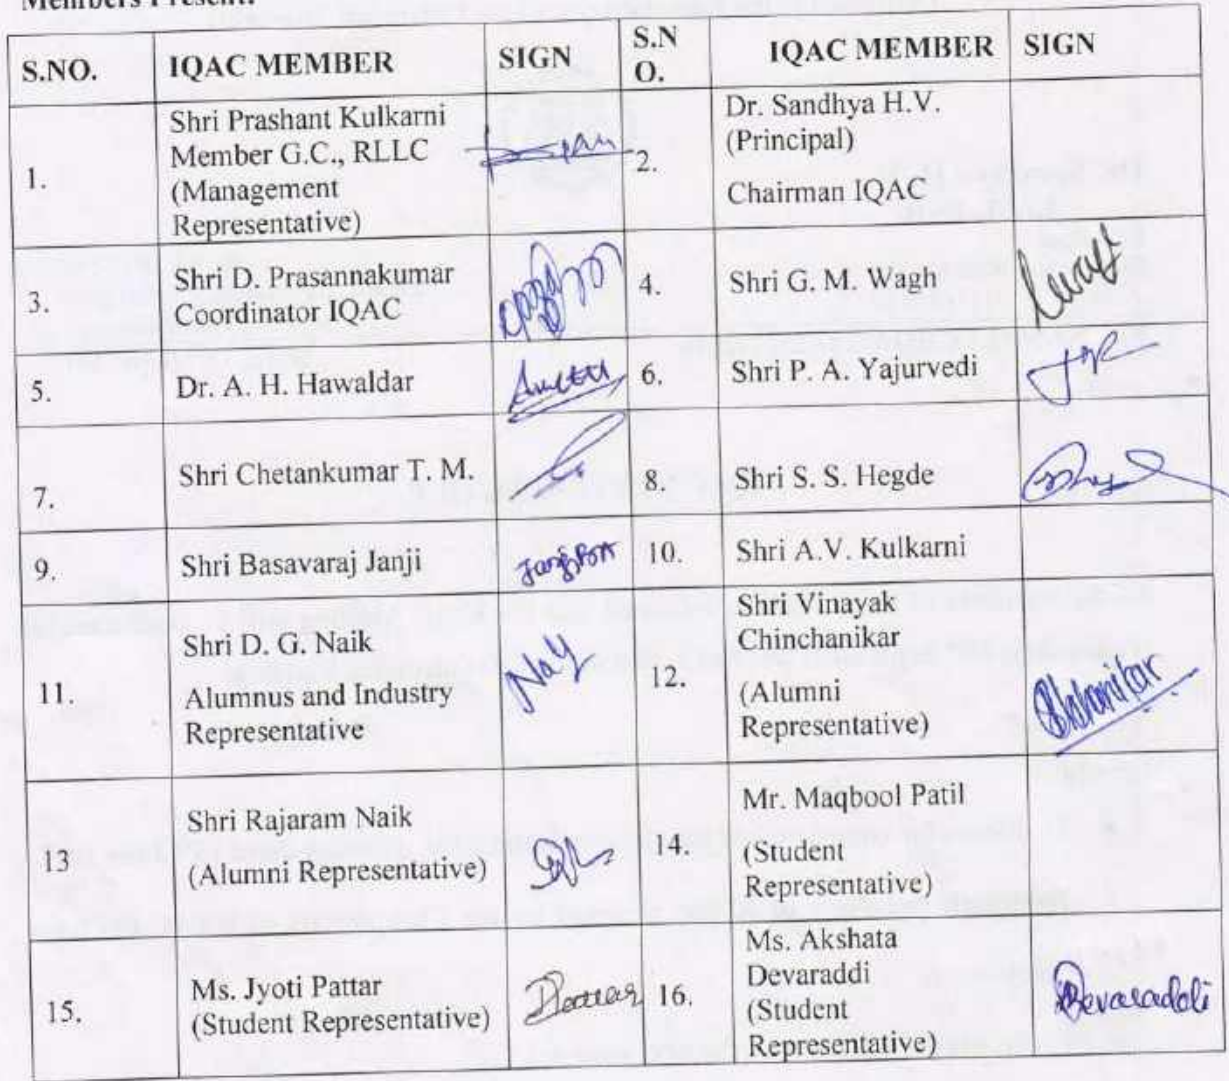 Members Present:
S.NO. IQAC MEMBER SIGN S.N O. IQAC MEMBER SIGN
1. Shri Prashant Kulkarni
Member G.C., RLLC
(Management
Representative)
2. Dr. Sandhya H.V.
(Principal)
Chairman IQAC
3. Shri D. Prasannakumar
Coordinator IQAC
4. Shri G. M. Wagh
5. Dr. A. H. Hawaldar
6. Shri P. A. Yajurvedi
7. Shri Chetankumar T. M.
8. Shri S. S. Hegde
9. Shri Basavaraj Janji
10. Shri A.V. Kulkarni
11. Shri D. G. Naik
Alumnus and Industry
Representative
12. Shri Vinayak
Chinchanikar
(Alumni
Representative)
13 Shri Rajaram Naik
(Alumni Representative)
14. Mr. Maqbool Patil
(Student
Representative)
15. Ms. Jyoti Pattar
(Student Representative)
16. Ms. Akshata
Devaraddi
(Student
Representative)
Devaraddi